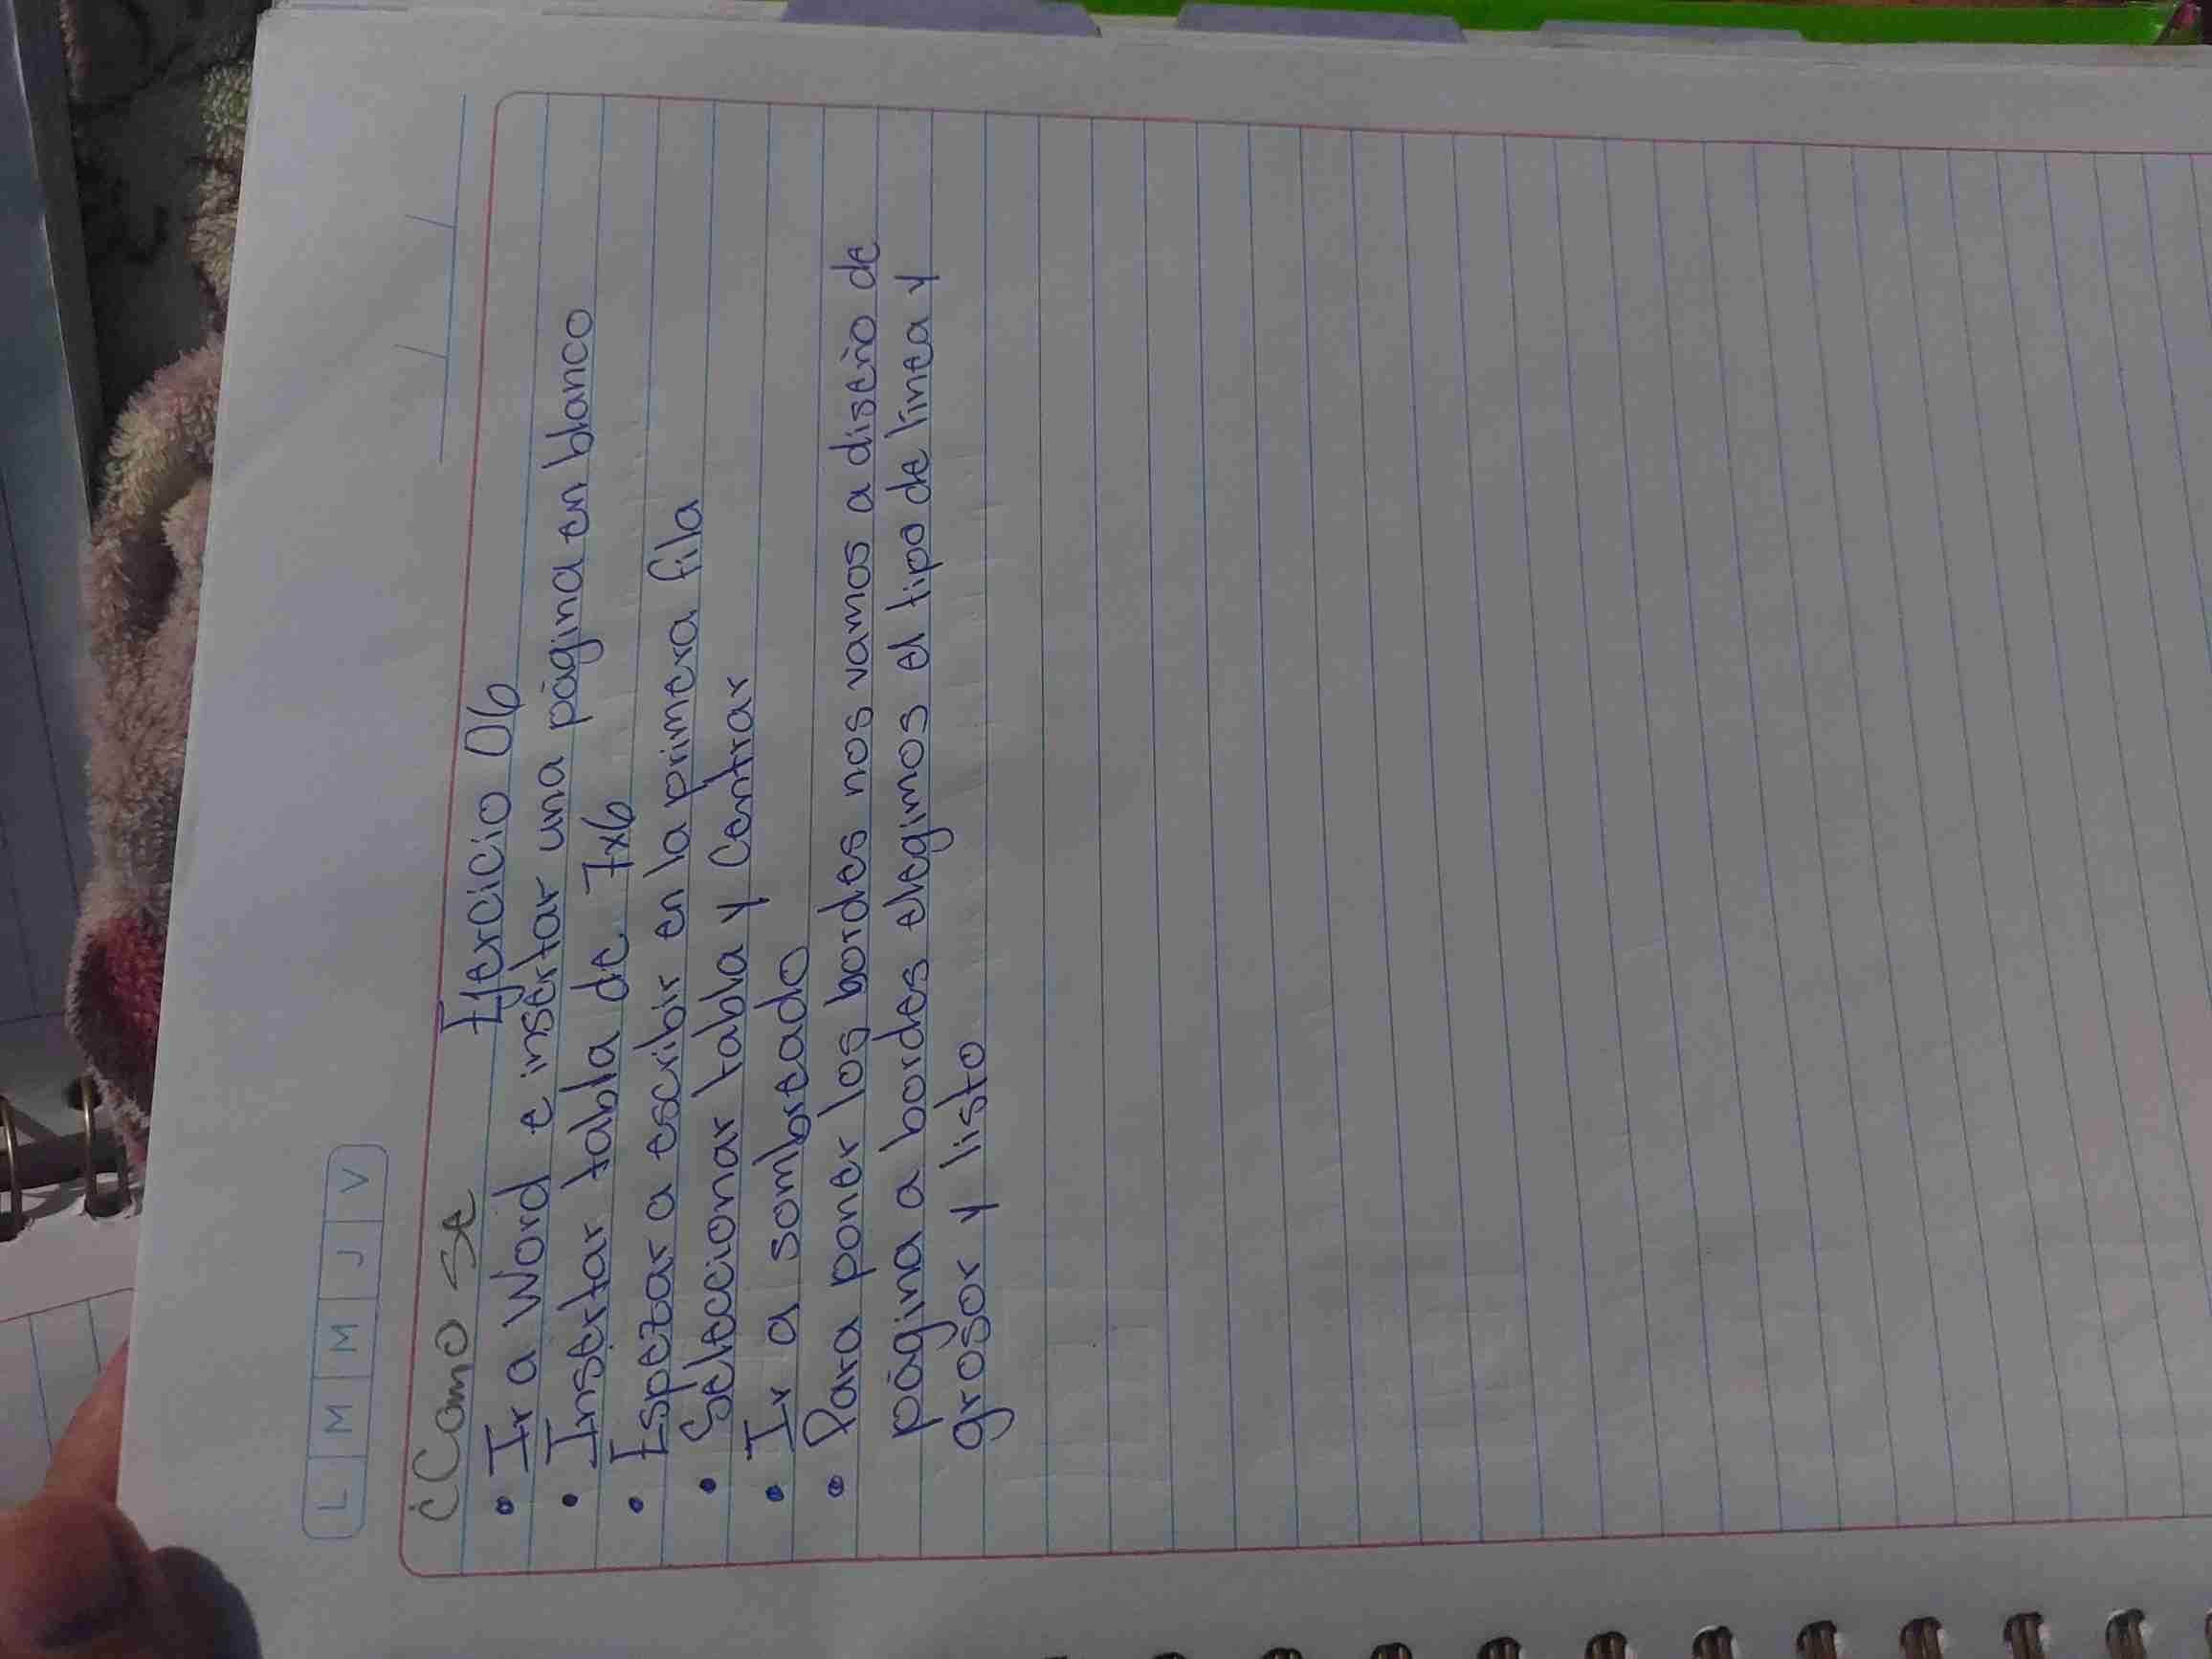 L M M J V
¿Como se
Ejercicio 06
• Ir a Word e insertar una página en blanco
• Insertar tabla de 7x6
• Espezar a escribir en la primera fila
• Seleccionar tabla y Centrar
• Ir a sombreado
• Para poner los bordes nos vamos a diseño de
página a bordes elegimos el tipo de linea y
grosor y listo